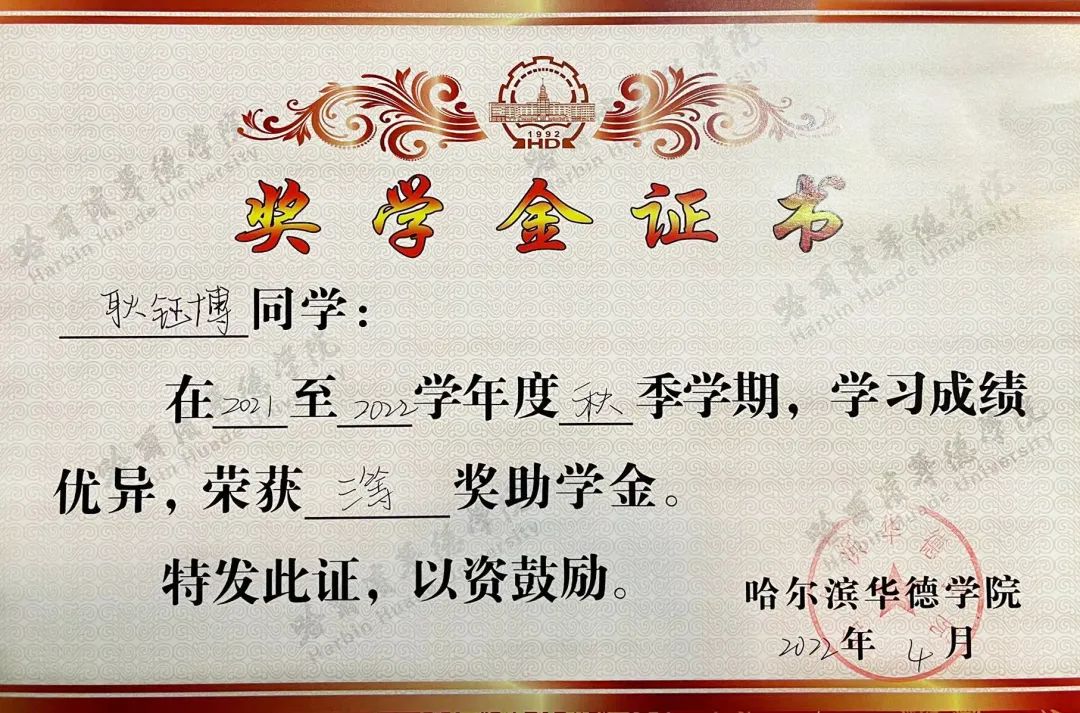 1992
HD
奖学金证书
耿钰博同学：
在2021至2022学年度秋季学期，学习成绩
优异，荣获三等奖助学金。
特发此证，以资鼓励。
哈尔滨华德学院
2022年4月
哈尔滨华德学院
Harbin Huade University